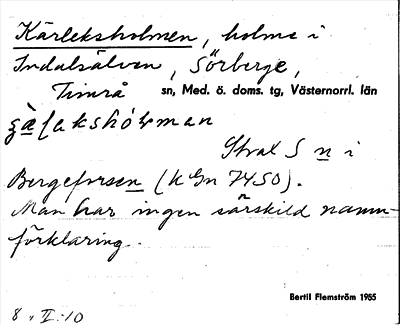 Kärleksholmen, holme i
Indalsälven, Sörberge,
Timrå sn, Med. ö. doms. tg, Västernorrl. län
Strax S n i
Bergeforsen (k Gn 7450).
Man har ingen särskild namn-
förklaring.
Bertil Flemström 1955
8. II:10